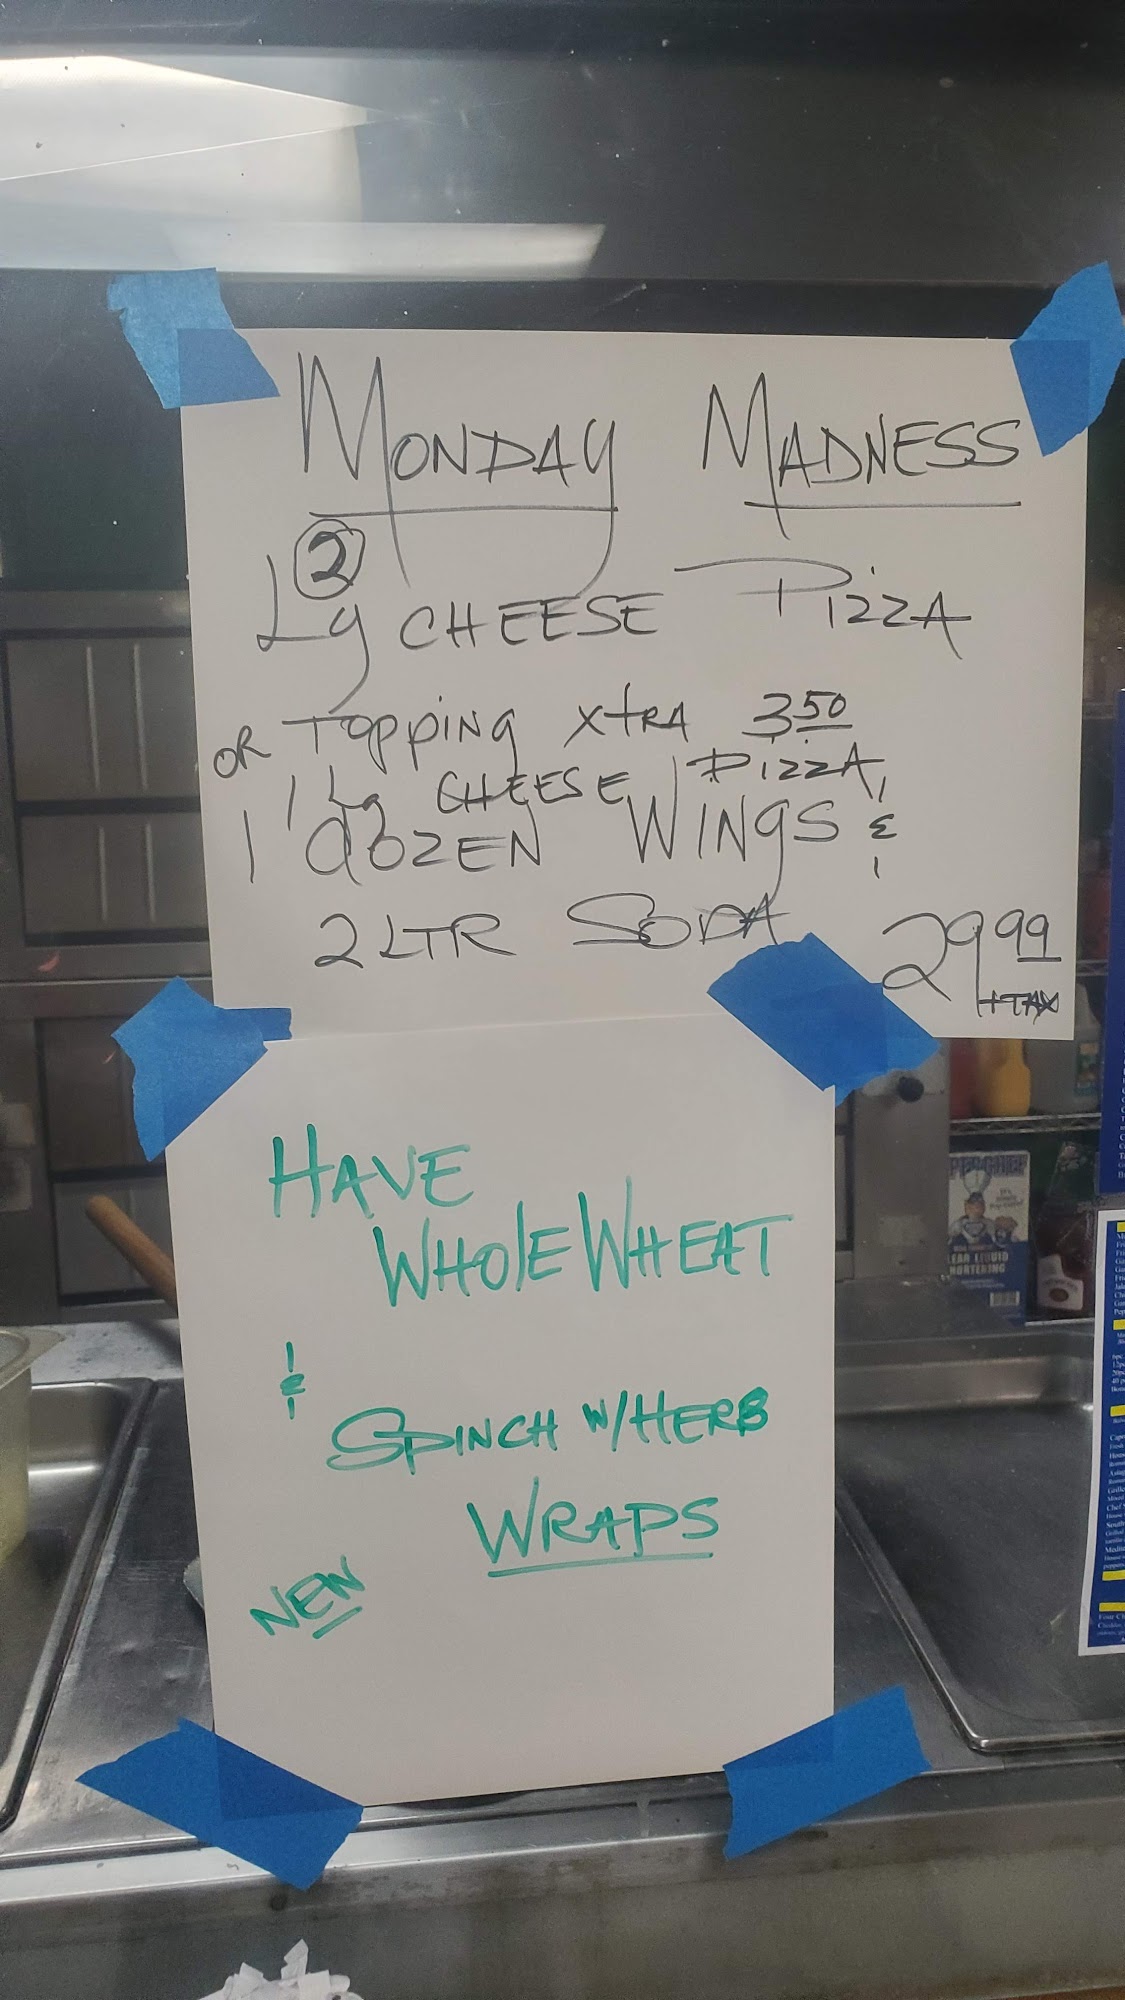 MONDAY MADNESS
2
Lg CHEESE PizzA
TOPPiNg xtRA 3.50
OR 1 Lg CHEESE PizzA,
1 dOZEN WiNgS &
2 LTR SODA 29 99
+TAX
HAVE
WHOlE WHEAT
&
SPINCH W/HERB
WRAPS
NEW
LIQUID